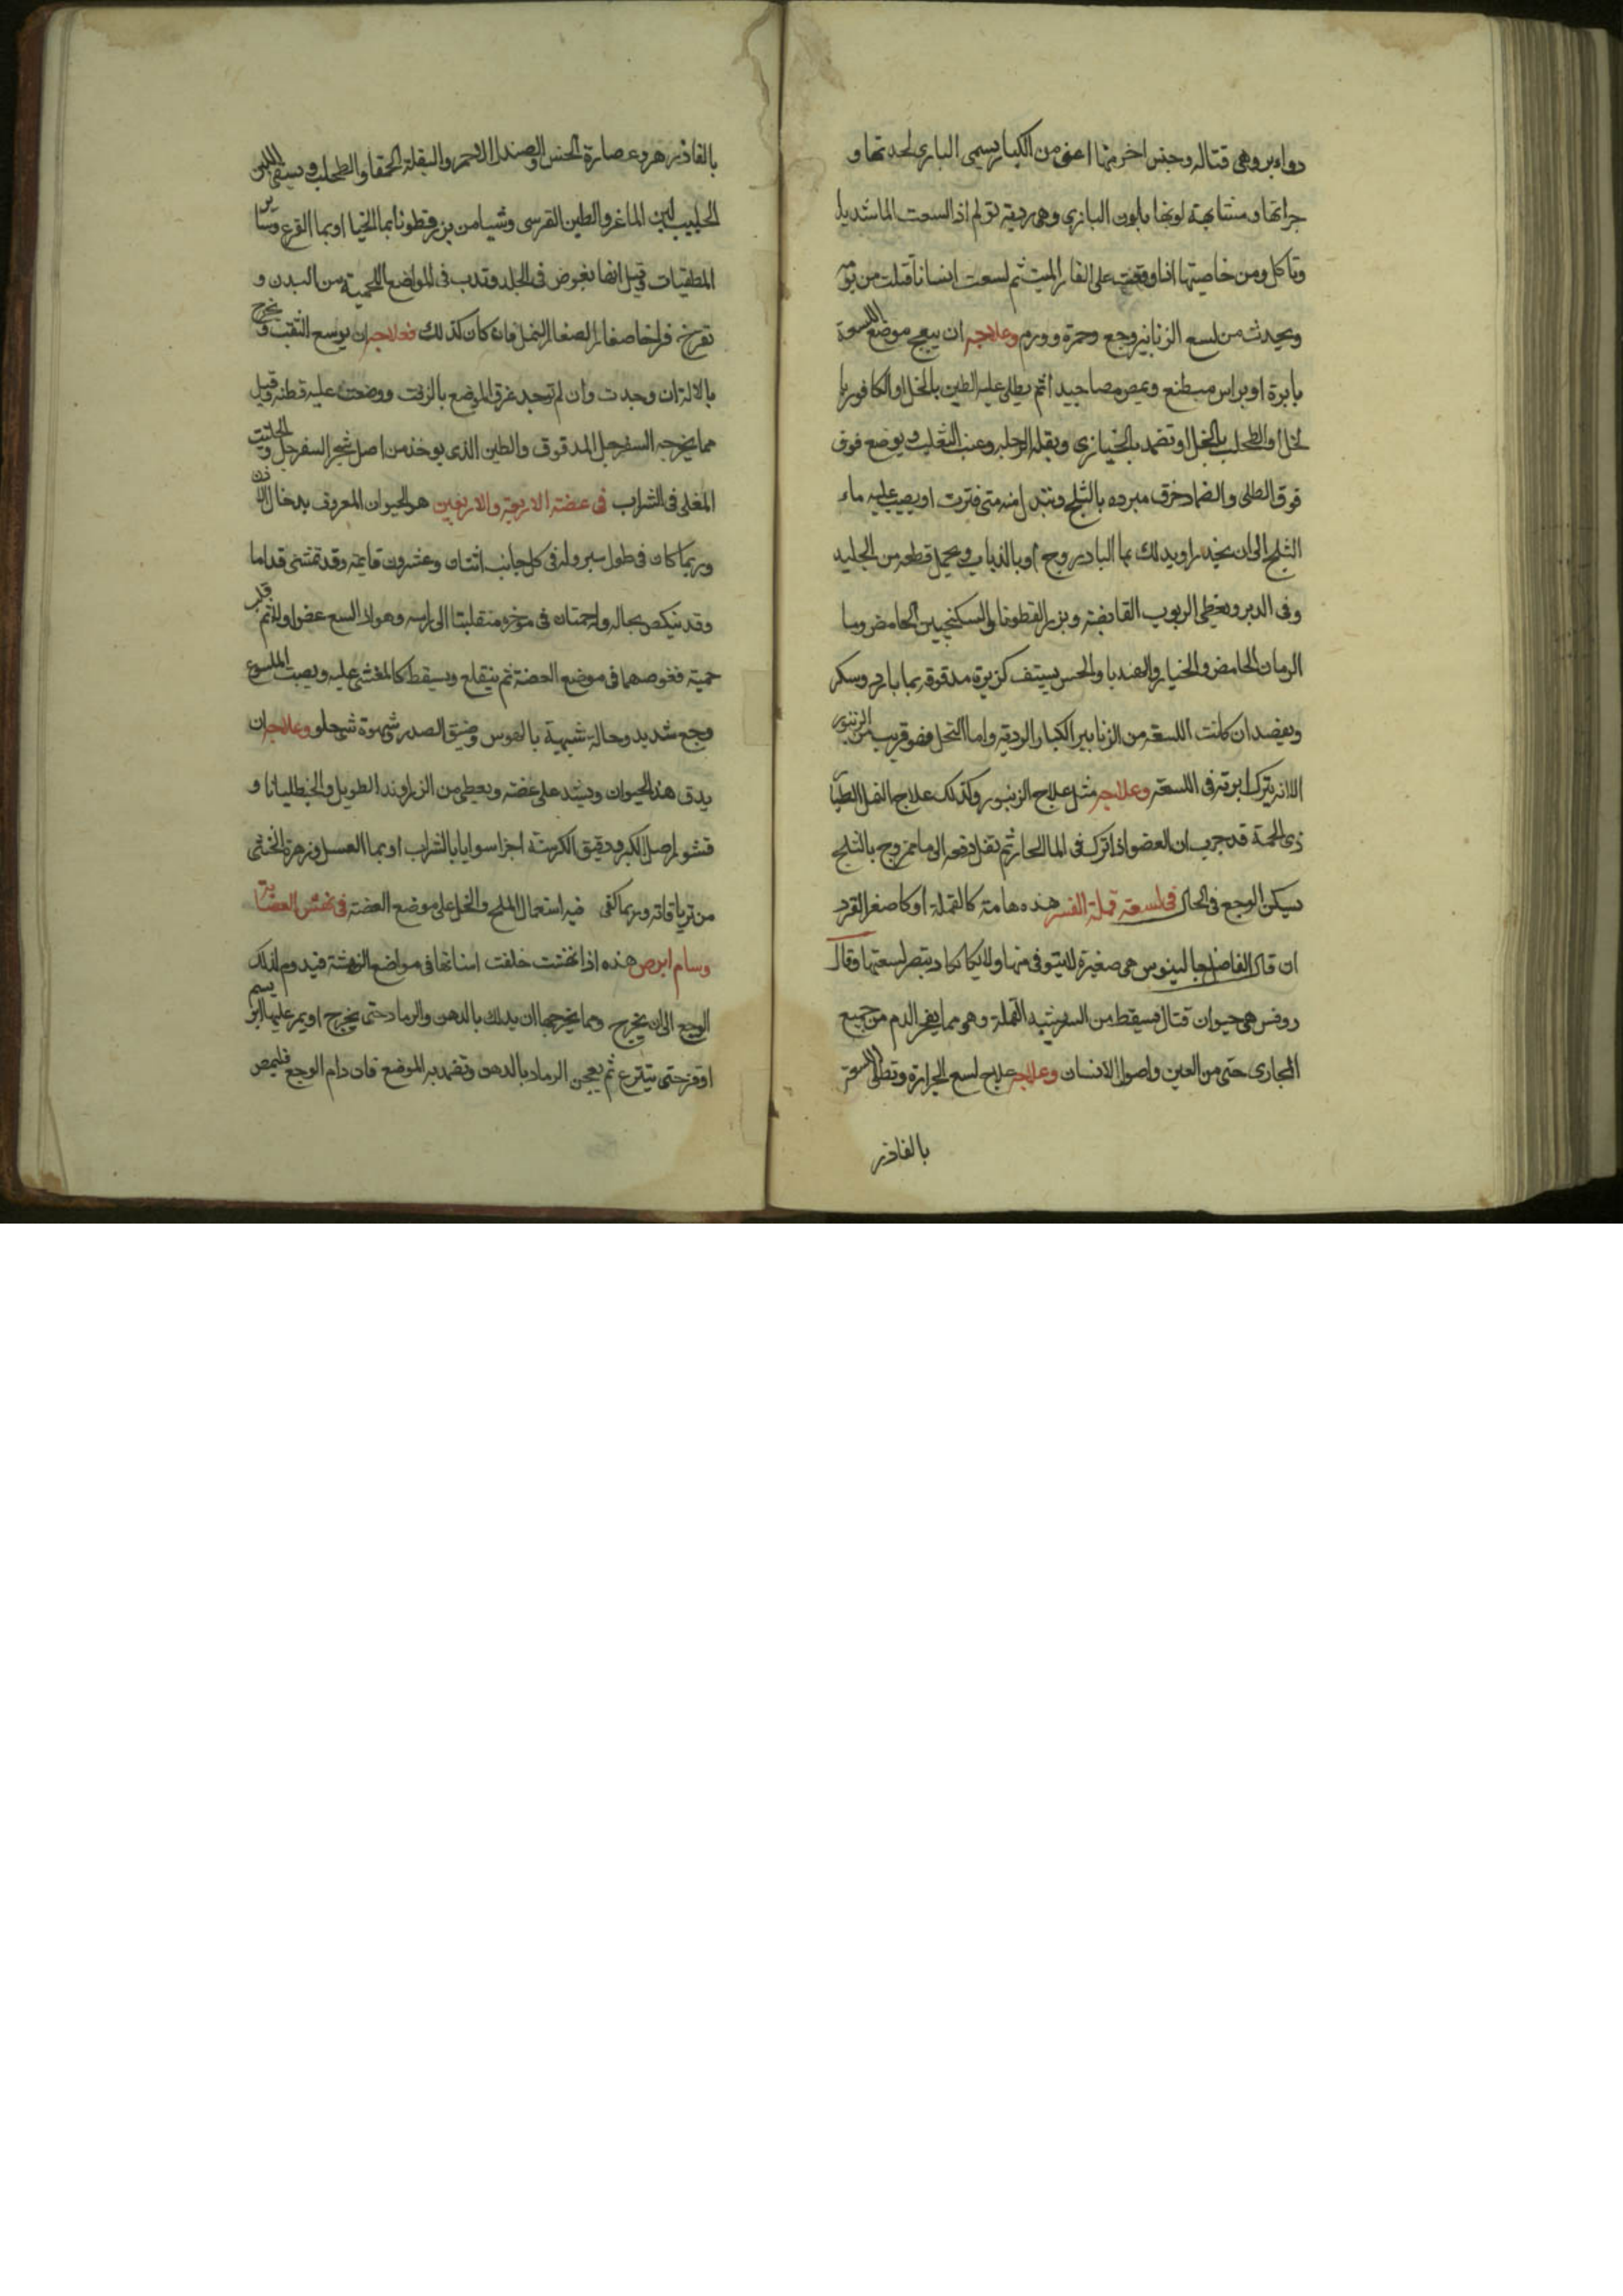 دوابر وهى قتاله وجنس اخر منها اعنى من الكبار يسمى البازى لحدتها و
جراتها ومشابهة لونها بلون البازى وهى رديه تولم اذا لسعت الما شديدا
وتاكل ومن خاصيتها انها وقعت على الفار الميت ثم لسعت انسانا قتلت من يومه
ويحدث من لسع الزنانير وجع وحمرة وورم وعلاجه ان يبعج موضع اللسعة
بابرة او براس مبضع ويمص مصا جيدا ثم يطلى عليه الطين بالخل او الكافور با
لخل او الطحلب بالخل او تضمد بالخبازى وبقله الرجله وعنب الثعلب ويوضع فوق
فوق الطلى والضماد خرق مبرده بالثلج وتبدل منه متى فترت او يصب عليه ماء
الثلج الى ان يخدر او يدلك بما البادروج او بالذباب ويحمل قطعه من الجليد
وفى الدبر ويعطى الربوب القابضة وبزر القطونا والسكنجبين الحامض وما
الرمان الحامض والخيار والهندبا والخس يستف كزبرة مدقوقه بما بارد وسكر
ويفصد ان كانت اللسعة من الزنابير الكبار الرديه واما النحل فهو قريب من الزنبور
الا انه يترك ابرته فى اللسعة وعلاجه مثل علاج الزنبور وكذلك علاج النمل الطيار
ذى الحمة قد جرب ان العضو اذا ترك فى الما الحار ثم نقل دفعه الى ما ممزوج بالثلج
يسكن الوجع فى الحال فى لسعة قملة النسر هذه هامة كالقملة او كاصغر القرد
ان قال الفاضل جالينوس هى صغيرة لا يتوقى منها ولا يكاد يبصر لسعتها وقال
روفس هى حيوان قتال يسقط من النسر شبيه القملة وهى مما يفجر الدم من جميع
المجارى حتى من العين واصول الاسنان وعلاجه علاج لسع الجرارة وتطلى اللسعة
بالفاذر
بالفاذزهر وعصارة الخس والصندل الاحمر والبقلة الحمقا والطحلب ويسقى اللبن
الحليب لبن الماعز والطين القبرسى وشيا من بزر قطونا بما الخيار او بما القرع وساير
المطفيات وقيل انها تغوص فى الجلد وتدب فى المواضع اللحمية من البدن و
تفرخ فراخا صغار الصغار النمل فان كان كذلك فعلاجه ان يوسع الثقب ويخرج
بالالة ان وجدت وان لم توجد غرق الموضع بالزفت ووضعت عليه قطنه وقيل
مما يخرجه السفرجل المدقوق والطين الذى يوخذ من اصل شجر السفرجل والحلتيت
المغلى فى الشراب فى عضة الاربعة والاربعين هو الحيوان المعروف بدخال الاذن
وربما كان فى طول شبر وله فى كل جانب اثنتان وعشرون قايمة وقد تمشى قداما
وقد ينكص بحاله وله حمتان فى موخره منقلبتا الى راسه وهو اذا لسع عضوا ولدغه ثم قلب
حميته فغوصهما فى موضع العضة ثم ينقلع ويسقط كالمغشى عليه ويصيب الملسوع
وجع شديد وحالة شبيهة بالهوس وضيق الصدر شهوة شى حلو وعلاجه ان
يدق هذا الحيوان ويشد على عضته ويعطى من الزراوند الطويل والجنطيانا و
قشور اصل الكبر ودقيق الكرسنة اجزا سوايا بالشراب او بما العسل وزهرة الخنثى
من ترياقاته وربما كفى فيه استعمال الملح والخل على موضع العضة فى نهش العضاية
وسام ابرص هذه اذا نهشت خلفت اسنانها فى مواضع النهشة فيدوم لذلك
الوجع الى ان يخرج ومما يخرجها ان يدلك بالدهن والرماد حتى يخرج او يمر عليها ابريسم
او قز حتى ينتزع ثم يعجن الرماد بالدهن وتضمد به الموضع فان دام الوجع فليمص